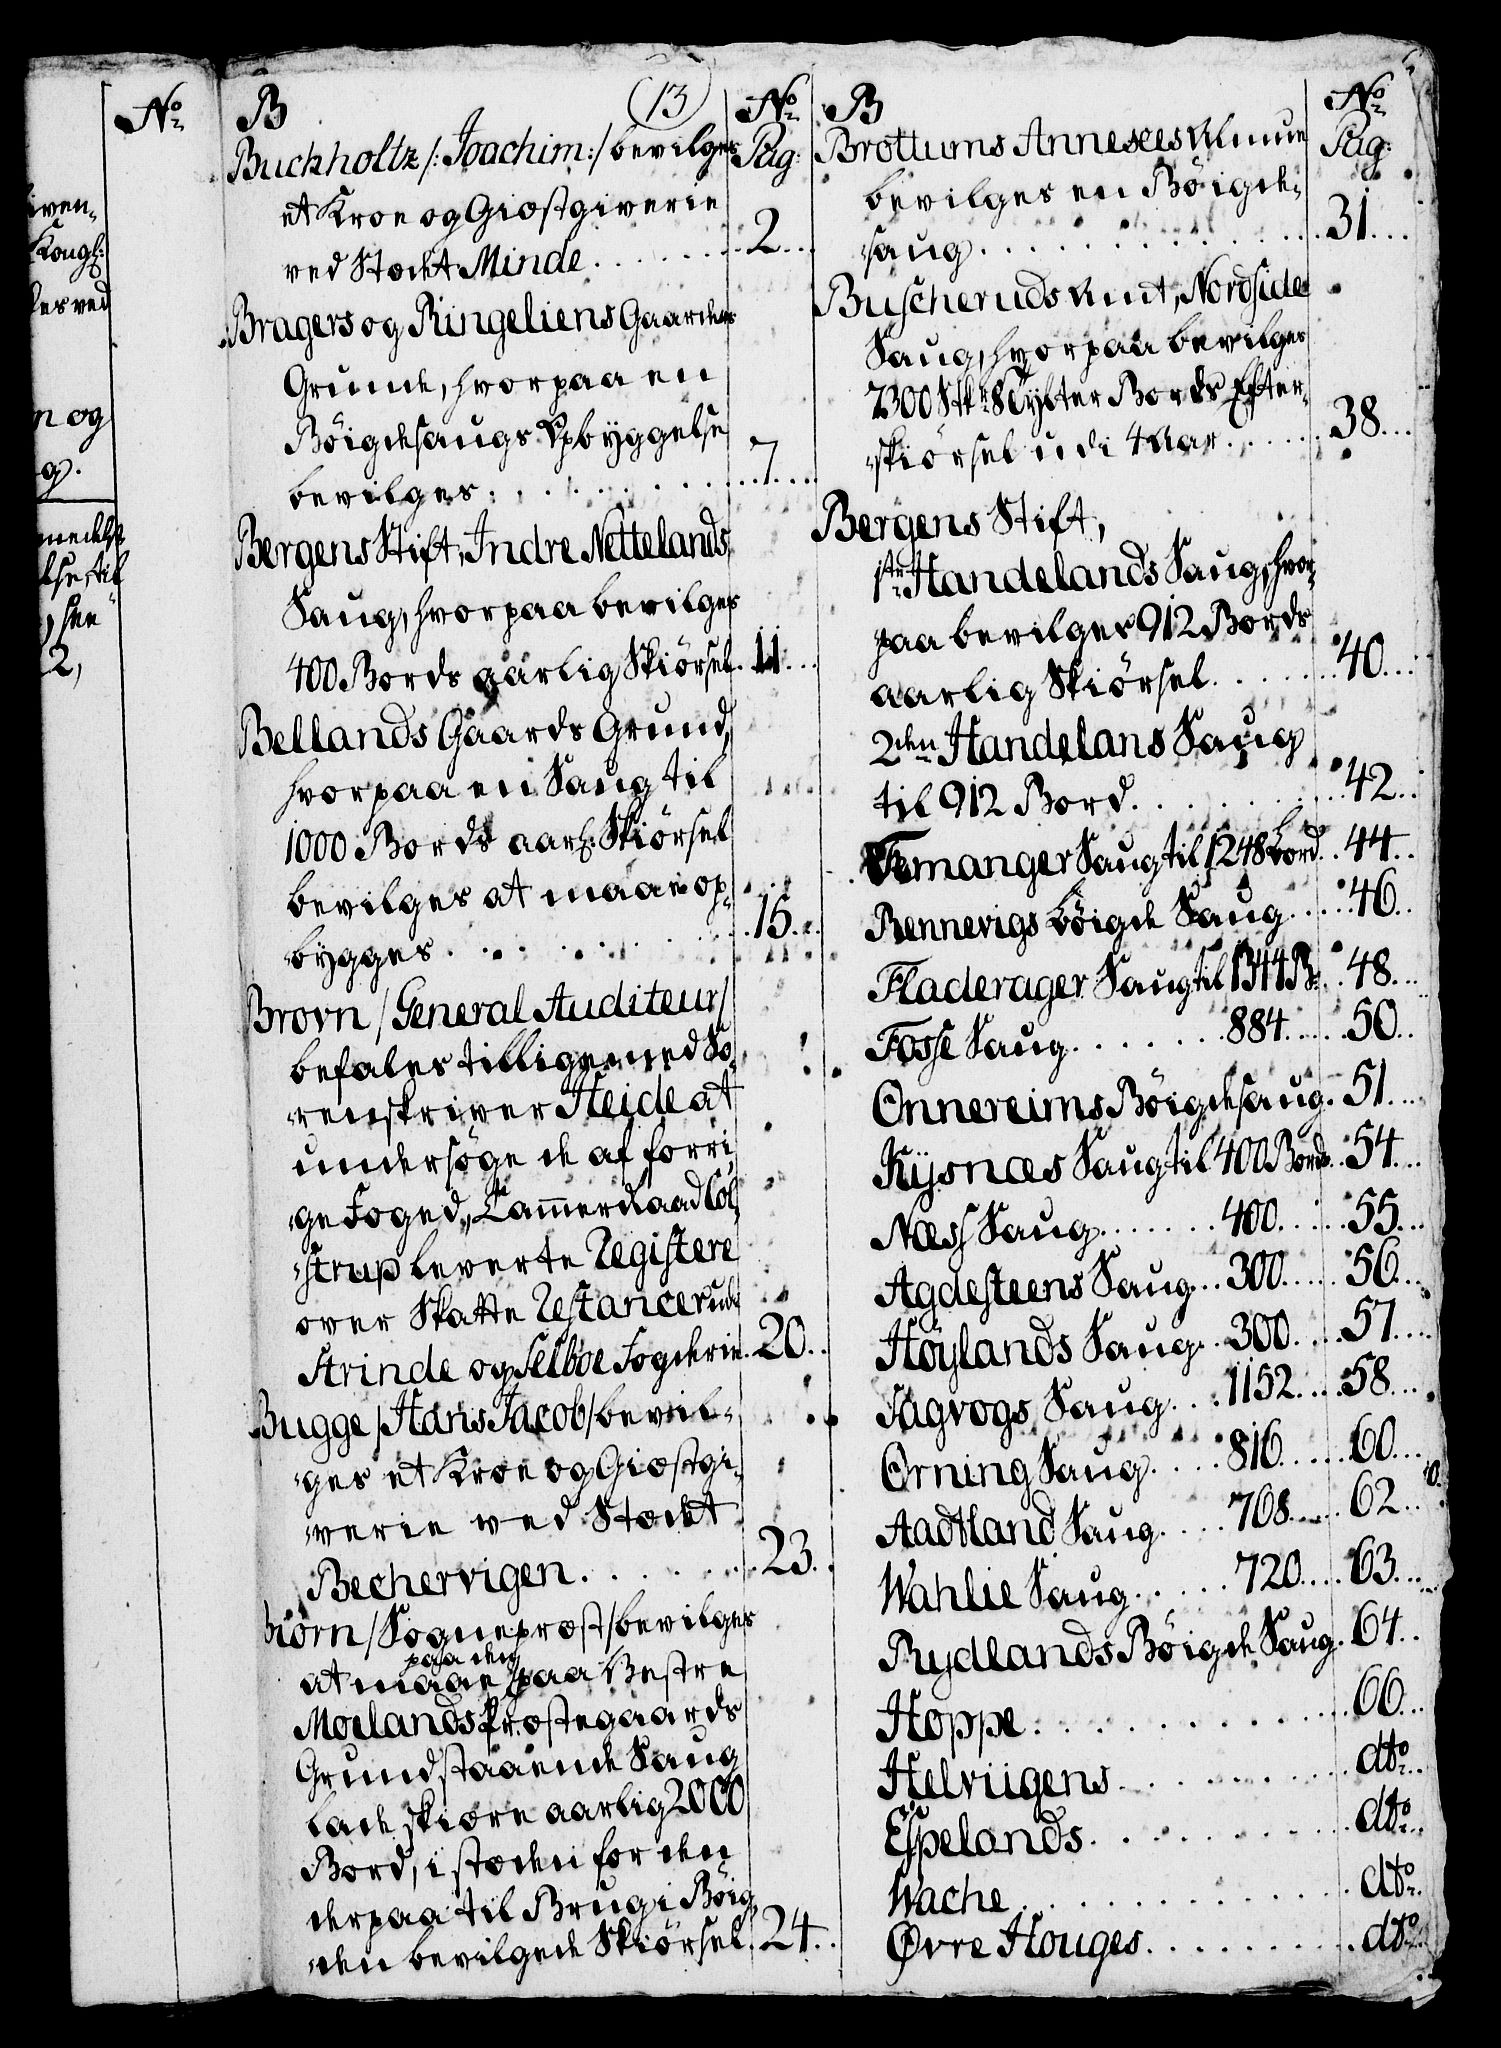 No
iven-
Kongl:
des ved
n og
g.
2,
B
(13)
No
Pag:
Buchholtz /: Joachim:/ bevilges
et Kroe og Giæstgiverie
ved Stædet Minde . . . . . . 2 . . .
Bragers og Ringeliens Gaardes
Grunde, hvorpaa en
Böigdesaugs Opbyggelse
bevilges . . . . . . . . . 7 . . .
Bergens Stift, Indre Nettelands
Saug, hvorpaa bevilges
400 Bords aarlig Skiørsel . 11 . . .
Bellands Gaards Grund,
hvorpaa en Saug til
1000 Bords aarl: Skiørsel
bevilges at maae op-
bygges . . . . . . . . . 15 . . .
Brovn / General Auditeur /
befales tillige med So-
renskriver Heide at
undersøge de af forri-
ge Foged, Cammerraad Col-
strup leverte Registere
over Skatte Restancer udi
Strinde og Selboe Fogderie . 20 . .
Bugge / Hans Jacob / bevil-
ges et Kroe og Giæstgi-
verie ved Stædet
Bechervigen . . . . . . . 23 . .
Biørn / Sognepræst / bevilges
paa den
at maae paa Vestre
Moelands Præstegaards
Grund staaende Saug
lade skiære aarlig 2000
Bord, i stæden for den
derpaa til Brug i Böig-
den bevilgede Skiørsel . 24 . .
B
No
Pag:
Brottums Annexes Almue
bevilges en Böigde-
saug . . . . . . . . . . 31 . . .
Buscheruds Amt, Nordside
Saug, hvorpaa bevilges
2300 Stkr 8 Tylter Bords Efter-
skiørsel udi 4 Aar . . . . . 38 . . .
Bergens Stift,
1ste Handelands Saug, hvor-
paa bevilges 912 Bords
aarlig Skiørsel . . . . . . 40 . . .
2den Handelans Saug
til 912 Bord . . . . . . . . 42 . .
Femanger Saug til 1248 Bord . . 44 . .
Rennevigs böigde Saug . . . . 46 . .
Fladerager Saug til 1344 B: . . 48 . . .
Fosse Saug . . . . . . . 884 . . . . 50 . .
Onnereims Böigdesaug . 51 . . .
Kysnæs Saug til 400 Bords . . 54 . . .
Næss Saug . . . . . . 400 . . . . 55 . . .
Agdesteens Saug . . 300 . . . . 56 . . .
Höylands Saug . . 300 . . . . 57 . . .
Sagvogs Saug . . . 1152 . . . . 58 . . .
Orning Saug . . . . 816 . . . . 60 . . .
Aadtland Saug . . . . 768 . . . 62 . .
Wahlie Saug . . . . . 720 . . . 63 . . .
Rydlands Böigde Saug . 64 . .
Hoppe . . . . . . . . . . 66 . . .
Helviigens . . . . . . . . dto . .
Espelands . . . . . . . . dto . .
Wache . . . . . . . . . . dto .
Øvre Houges . . . . . . . dto . .